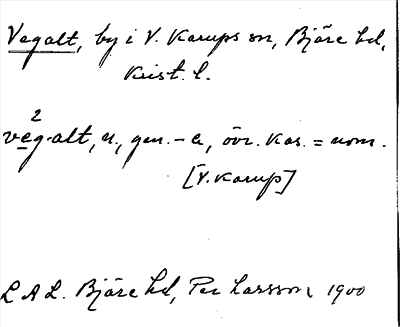 Vegalt, by i V. Karups sn, Bjäre hd,
Krist. l.
2
veg-alt, n., gen. - a, övr. kas. = nom.
[V. Karup]
L A L. Bjäre hd, Per Larsson 1900